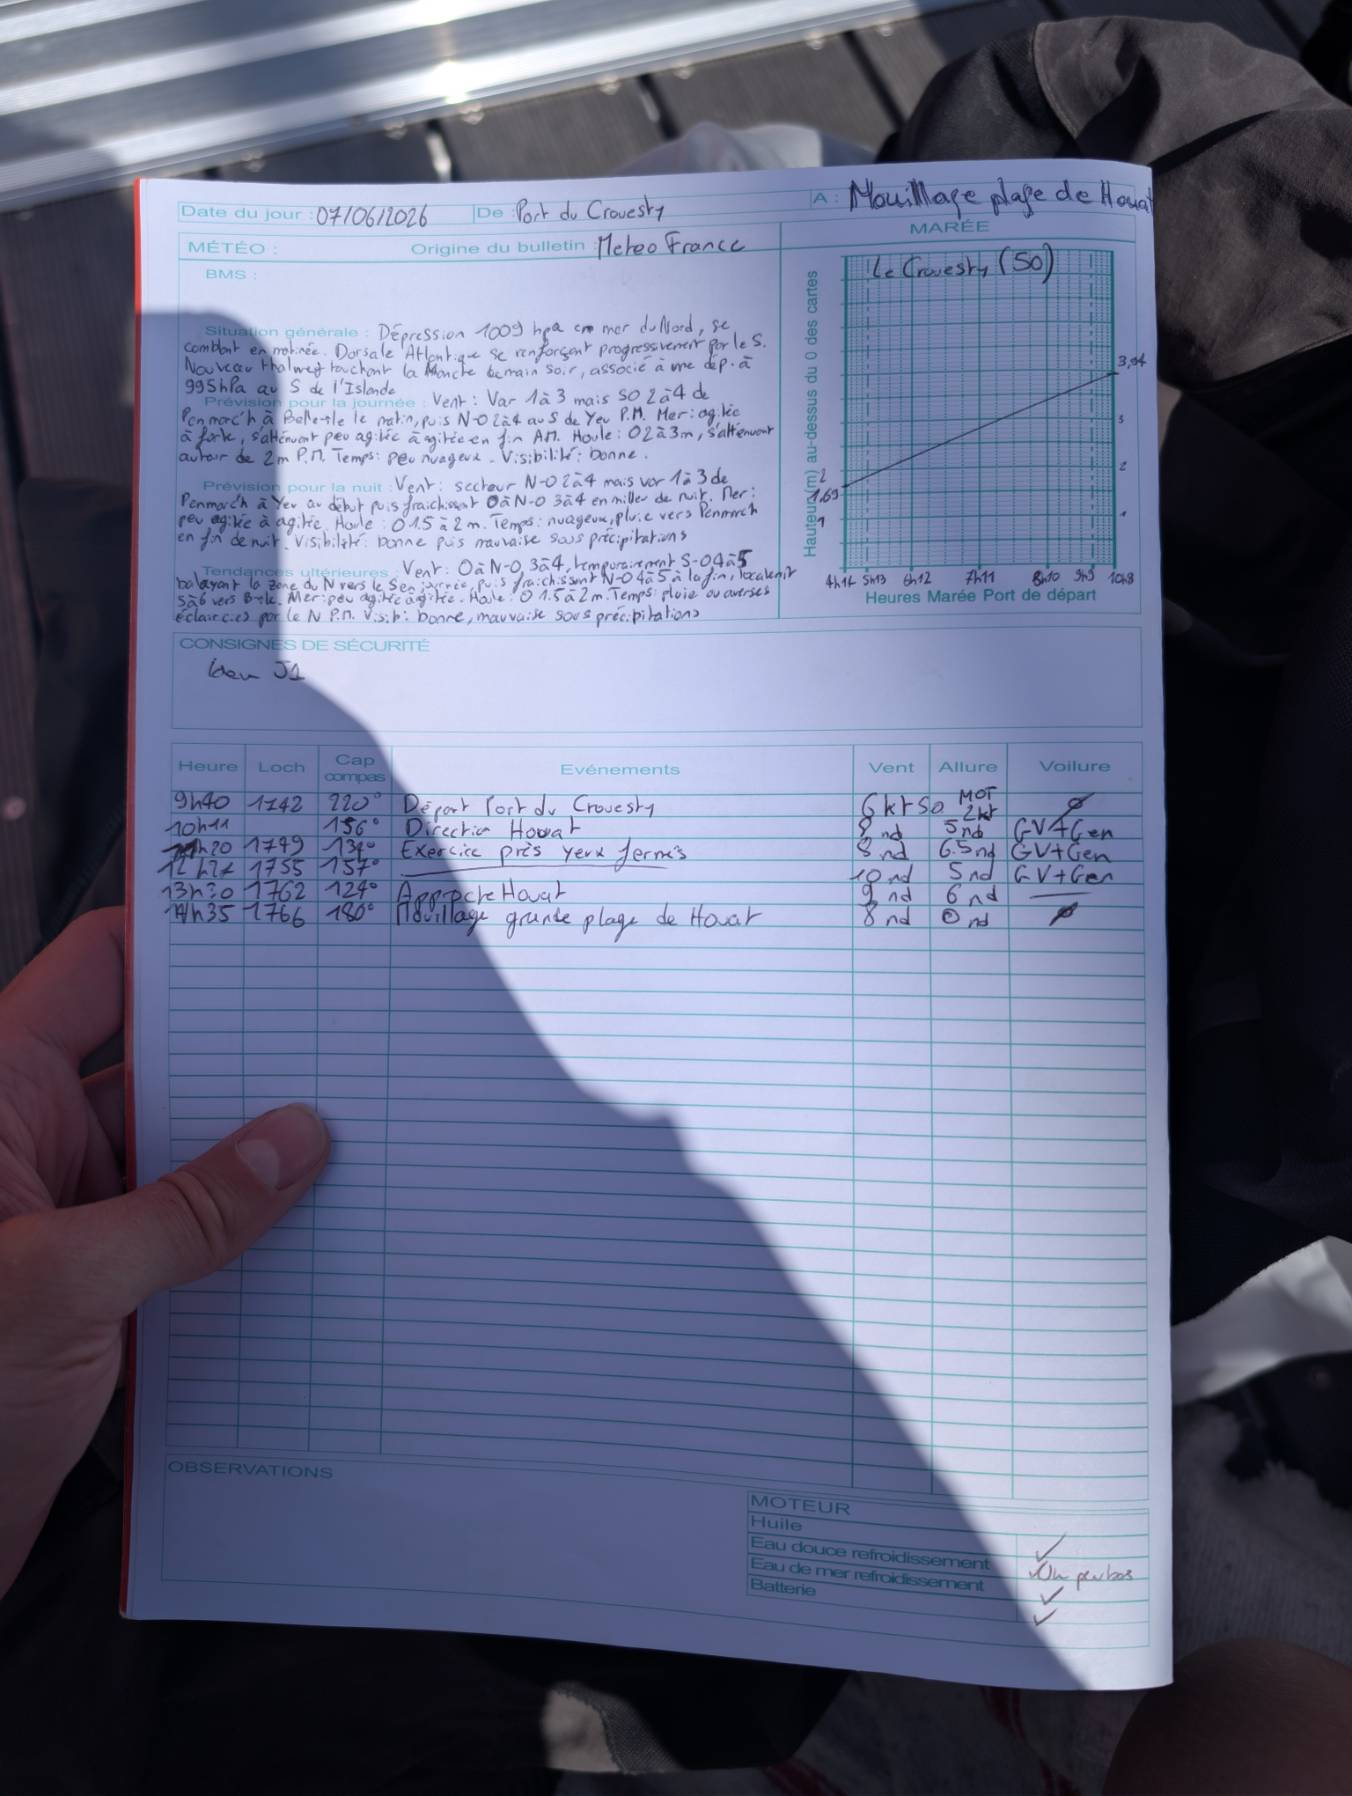 Date du jour : 07/06/2026 De : Port du Crouesty A : Mouillage plage de Houat
MÉTÉO : Origine du bulletin : Meteo France MARÉE
BMS :
Le Crouesty (50)
Situation générale : Dépression 1009 hpa en mer du Nord, se
comblant en matinée. Dorsale Atlantique se renforçant progressivement par le S.
Nouveau thalweg touchant la Manche demain soir, associé à une dép. à
995hPa au S de l'Islande
Prévision pour la journée : Vent : Var 1à3 mais SO 2à4 de
Penmarc'h à Belle-Ile le matin, puis N-O 2à4 au S de Yeu P.M. Mer: agitée
à forte, s'atténuant peu agitée à agitée en fin AM. Houle : O 2à3m, s'atténuant
autour de 2m P.M. Temps: peu nuageux. Visibilité: bonne.
Prévision pour la nuit : Vent : secteur N-O 2à4 mais var 1à3 de
Penmarch à Yeu au début puis fraichissant O à N-O 3à4 en milieu de nuit. Mer:
peu agitée à agitée. Houle : O 1.5 à 2m. Temps: nuageux, pluie vers Penmarch
en fin de nuit. Visibilité: bonne puis mauvaise sous précipitations
Tendances ultérieures : Vent: O à N-O, 3à4, temporairement S-O 4à5
balayant la zone du N vers le S en journée, puis fraichissant N-O 4à5 à la fin, localement
5à6 vers Mer: peu agitée à agitée. Houle: O 1.5à2m. Temps: pluie ou averses
éclaircies par le N P.M. Visib: bonne, mauvaise sous précipitations
Hauteur (m) au-dessus du 0 des cartes
3,94
3
2
2
1,69
1
1
4h14 5h13 6h12 7h11 8h10 9h9 10h8
Heures Marée Port de départ
CONSIGNES DE SÉCURITÉ
Idem J1
Heure Loch Cap compas Evénements Vent Allure Voilure
9h40 1742 220° Départ Port du Crouesty 6kt SO MOT 2kt ø
10h11 156° Direction Houat 8 nd 5nd GV+Gen
h20 1749 Exercice près yeux fermés 8 nd 6.5nd GV+Gen
1755 157° 10 nd 5 nd GV+Gen
13h30 1762 124° Approche Houat 9 nd 6 nd
14h35 1766 180° Mouillage grande plage de Houat 8 nd 0 nd ø
OBSERVATIONS
MOTEUR
Huile ✓
Eau douce refroidissement ✓ Un peu bas
Eau de mer refroidissement ✓
Batterie ✓